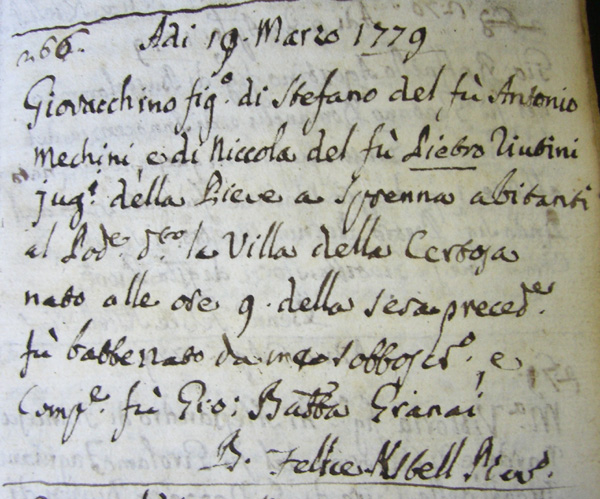 n.o 66. Adi 19. Marzo 1779
Giovacchino fig.o di Stefano del fù Antonio
Mechini e di Niccola del fù Pietro Viubini
jug.i della Pieve a Sprenna abitanti
al Pod.e d.eto la Villa della Certosa
nato alle ore 9. della sera preced.e
fù battezzato da me sottoscr.o e
Comp.e fù Gio: Batta Granai
B. Felice Piev.o